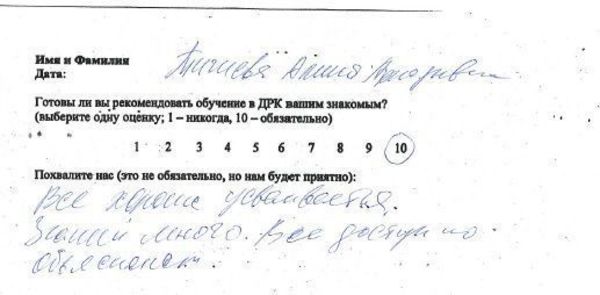 Имя и Фамилия
Дата:
Готовы ли вы рекомендовать обучение в ДРК вашим знакомым?
(выберите одну оценку; 1 – никогда, 10 – обязательно)
1 2 3 4 5 6 7 8 9 10
Похвалите нас (это не обязательно, но нам будет приятно):
Все хорошо усваивается.
Знаний много. Все доступно